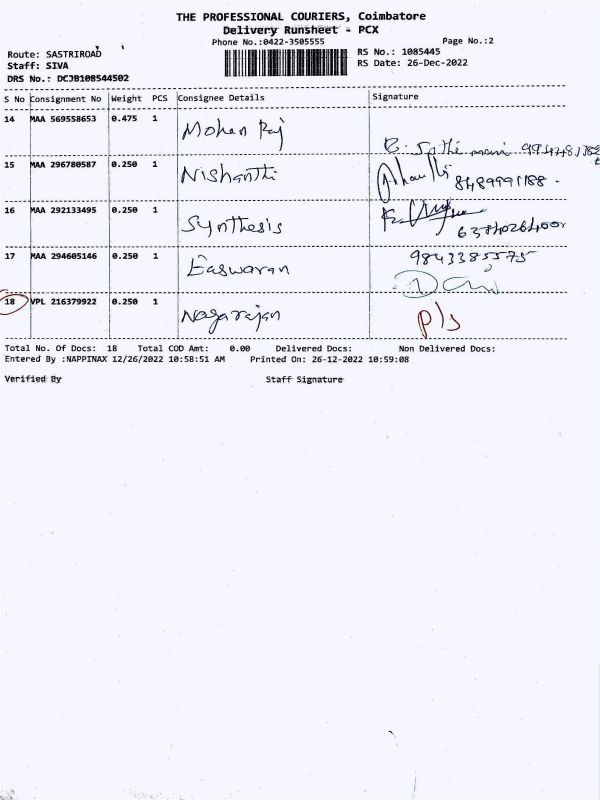 THE PROFESSIONAL COURIERS, Coimbatore
Delivery Runsheet - PCX
Phone No.:0422-3505555 Page No.:2
Route: SASTRIROAD RS No.: 1085445
Staff: SIVA RS Date: 26-Dec-2022
DRS No.: DCJB108544502
S No Consignment No Weight PCS Consignee Details Signature
14 MAA 569558653 0.475 1 Mohan Raj
15 MAA 296780587 0.250 1 Nishanthi 8489991188.
16 MAA 292133495 0.250 1 Synthesis
17 MAA 294605146 0.250 1 Easwaran 9843385575
18 VPL 216379922 0.250 1 Nagarajan P/s
Total No. Of Docs: 18 Total COD Amt: 0.00 Delivered Docs: Non Delivered Docs:
Entered By :NAPPINAX 12/26/2022 10:58:51 AM Printed On: 26-12-2022 10:59:08
Verified By Staff Signature